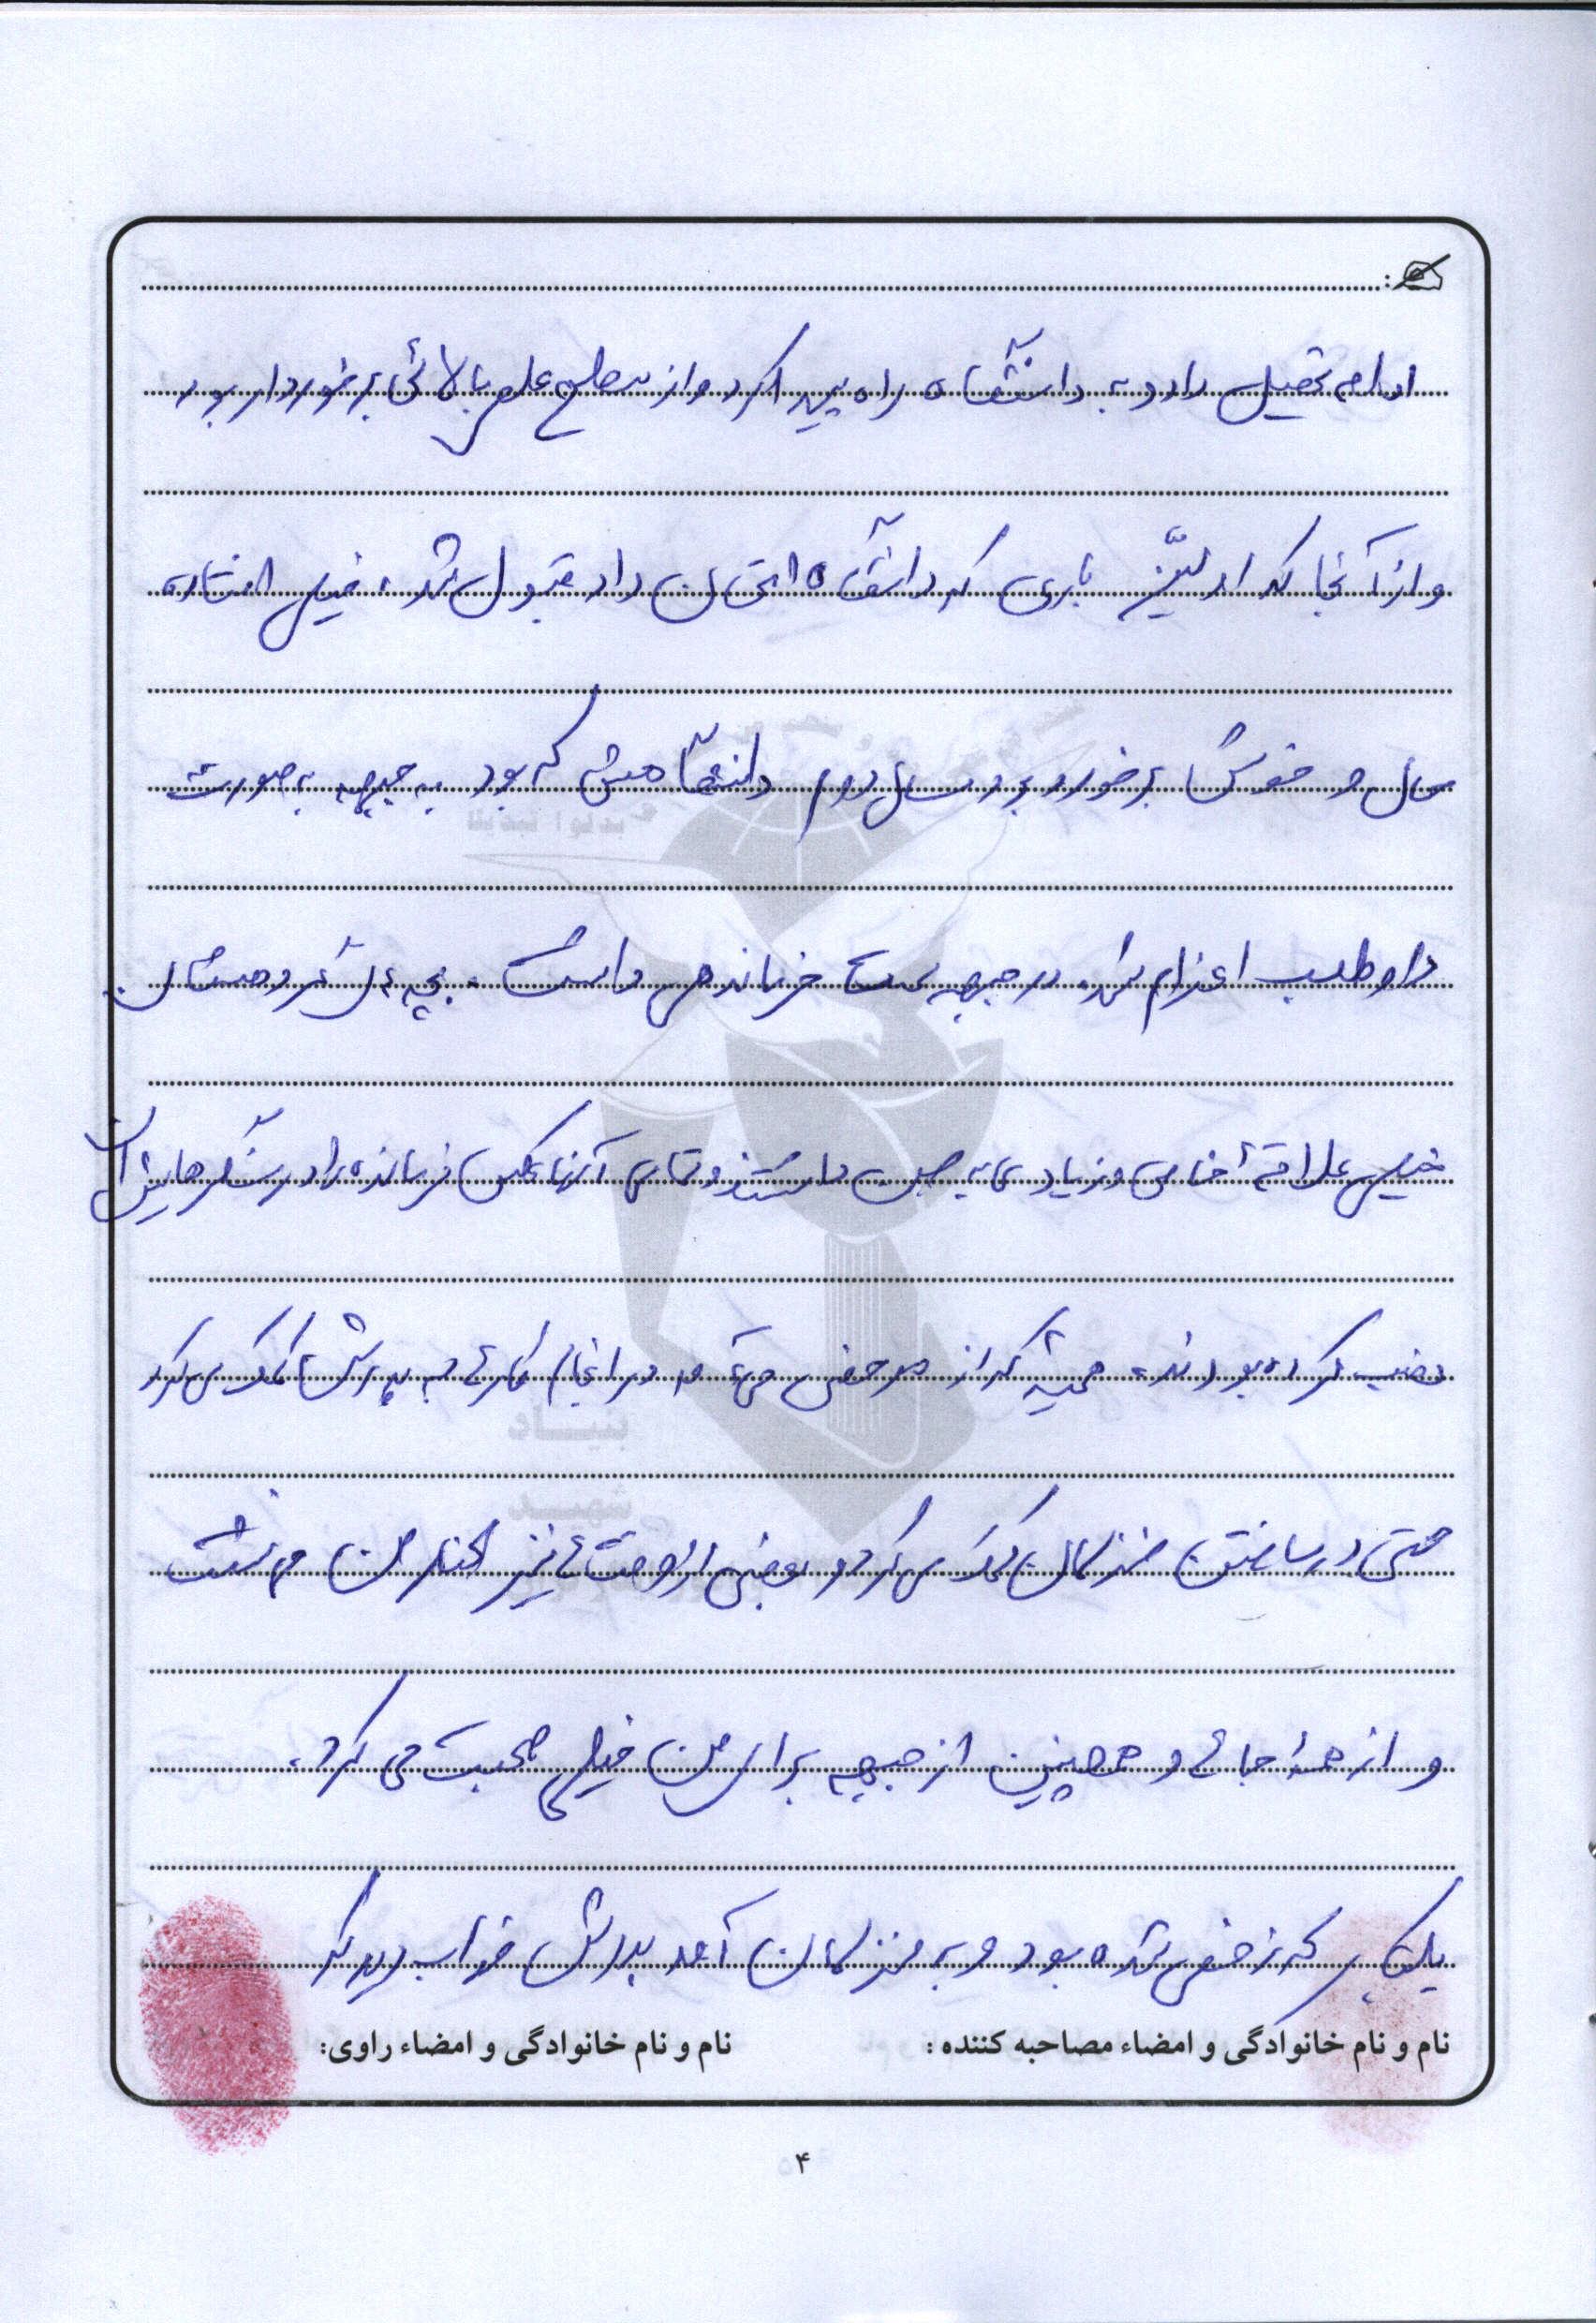 ادامه تحصیل داد و به دانشگاه راه پیدا کرد و از سطح علمی بالائی برخوردار بود
و از آنجا که اولین باری که دانشگاه امتحان داد قبول شد، خیلی افتاده
حال و خوش برخورد بود سال دوم دانشگاهش که بود به جبهه به صورت
داوطلب اعزام شد. در جبهه سمت فرماندهی داشت. بچه‌های و دوستان
خیلی علاقهٔ خاصی و زیادی به داشتند و تمامی آنها عکس فرمانده را در سنگرهایشان
نصب کرده بودند، همیشه که از مرخصی می‌آمد در انجام کارها به پدرش کمک می‌کرد
حتی در ساختن منزلمان کمک می‌کرد و بعضی اوقات نیز کنار من می‌نشست
و از همه جا و همچنین از جبهه برای من خیلی صحبت می‌کرد.
یکبار که زخمی شده بود و به منزلمان آمد پدرش خواب دید که
نام و نام خانوادگی و امضاء مصاحبه کننده : نام و نام خانوادگی و امضاء راوی:
۴